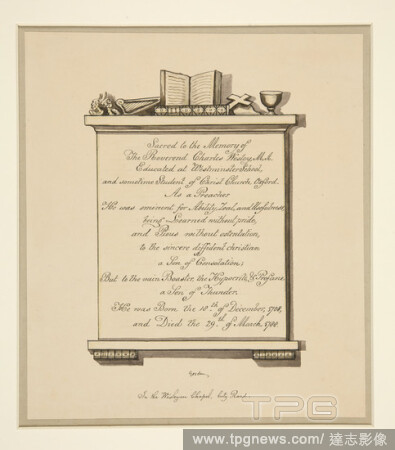 Sacred to the Memory of
The Reverend Charles Wesley, M.A.
Educated at Westminster School,
and sometime Student of Christ Church, Oxford.
As a Preacher
He was eminent for Ability, Zeal, and Usefulness,
being Learned without pride,
and Pious without ostentation,
to the sincere diffident christian
a Son of Consolation;
But to the vain Boaster, the Hypocrite, & Profane,
a Son of Thunder.
He was Born the 18.th of December, 1708,
and Died the 29.th of March, 1788
In the Wesleyan Chapel, City Road
TPG
www.tpgnews.com/達志影像